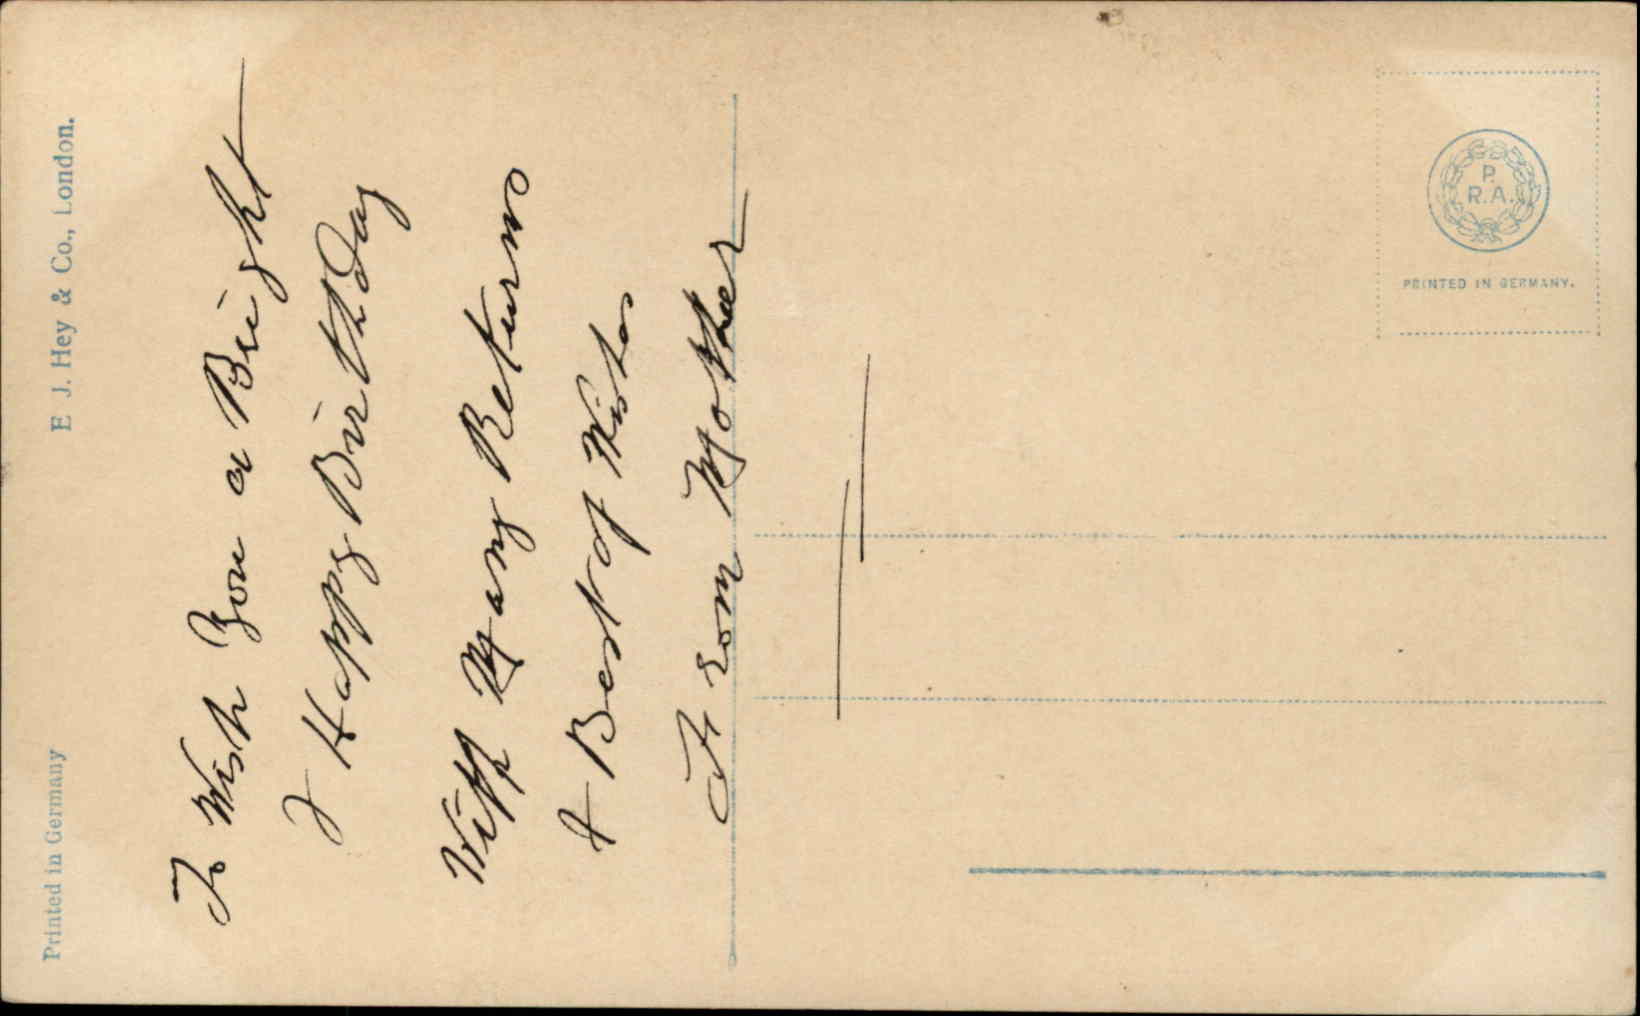 Printed in Germany
E. J. Hey & Co., London.
To Wish You a Bright
& Happy Birthday
With Many Returns
& Best of Wishes
From Mother
P.
R.A.
PRINTED IN GERMANY.